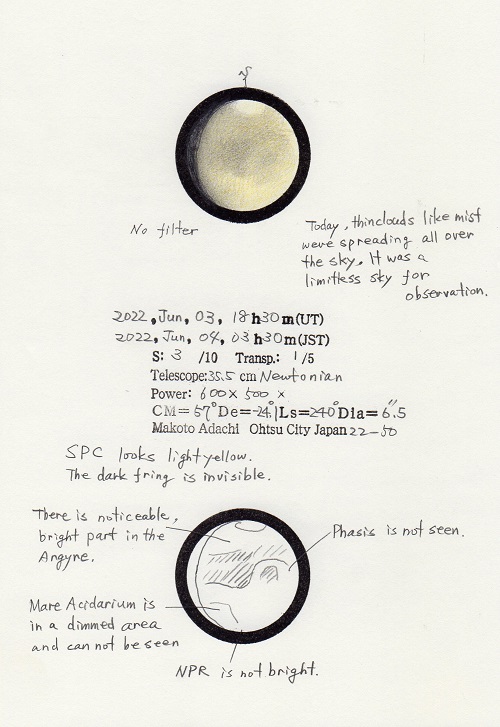 S
No filter
Today, thin clouds like mist
were spreading all over
the sky. It was a
limitless sky for
observation.
2022, Jun, 03, 18h30m(UT)
2022, Jun, 04, 03h30m(JST)
S: 3 /10 Transp.: 1/5
Telescope: 35.5 cm Newtonian
Power: 600× 500 ×
CM= 57° De=-24.° Ls=240° Dia= 6".5
Makoto Adachi Ohtsu City Japan 22-50
SPC looks light yellow.
The dark fring is invisible.
There is noticeable,
bright part in the
Angyre.
Phasis is not seen.
Mare Acidarium is
in a dimmed area
and can not be seen
NPR is not bright.